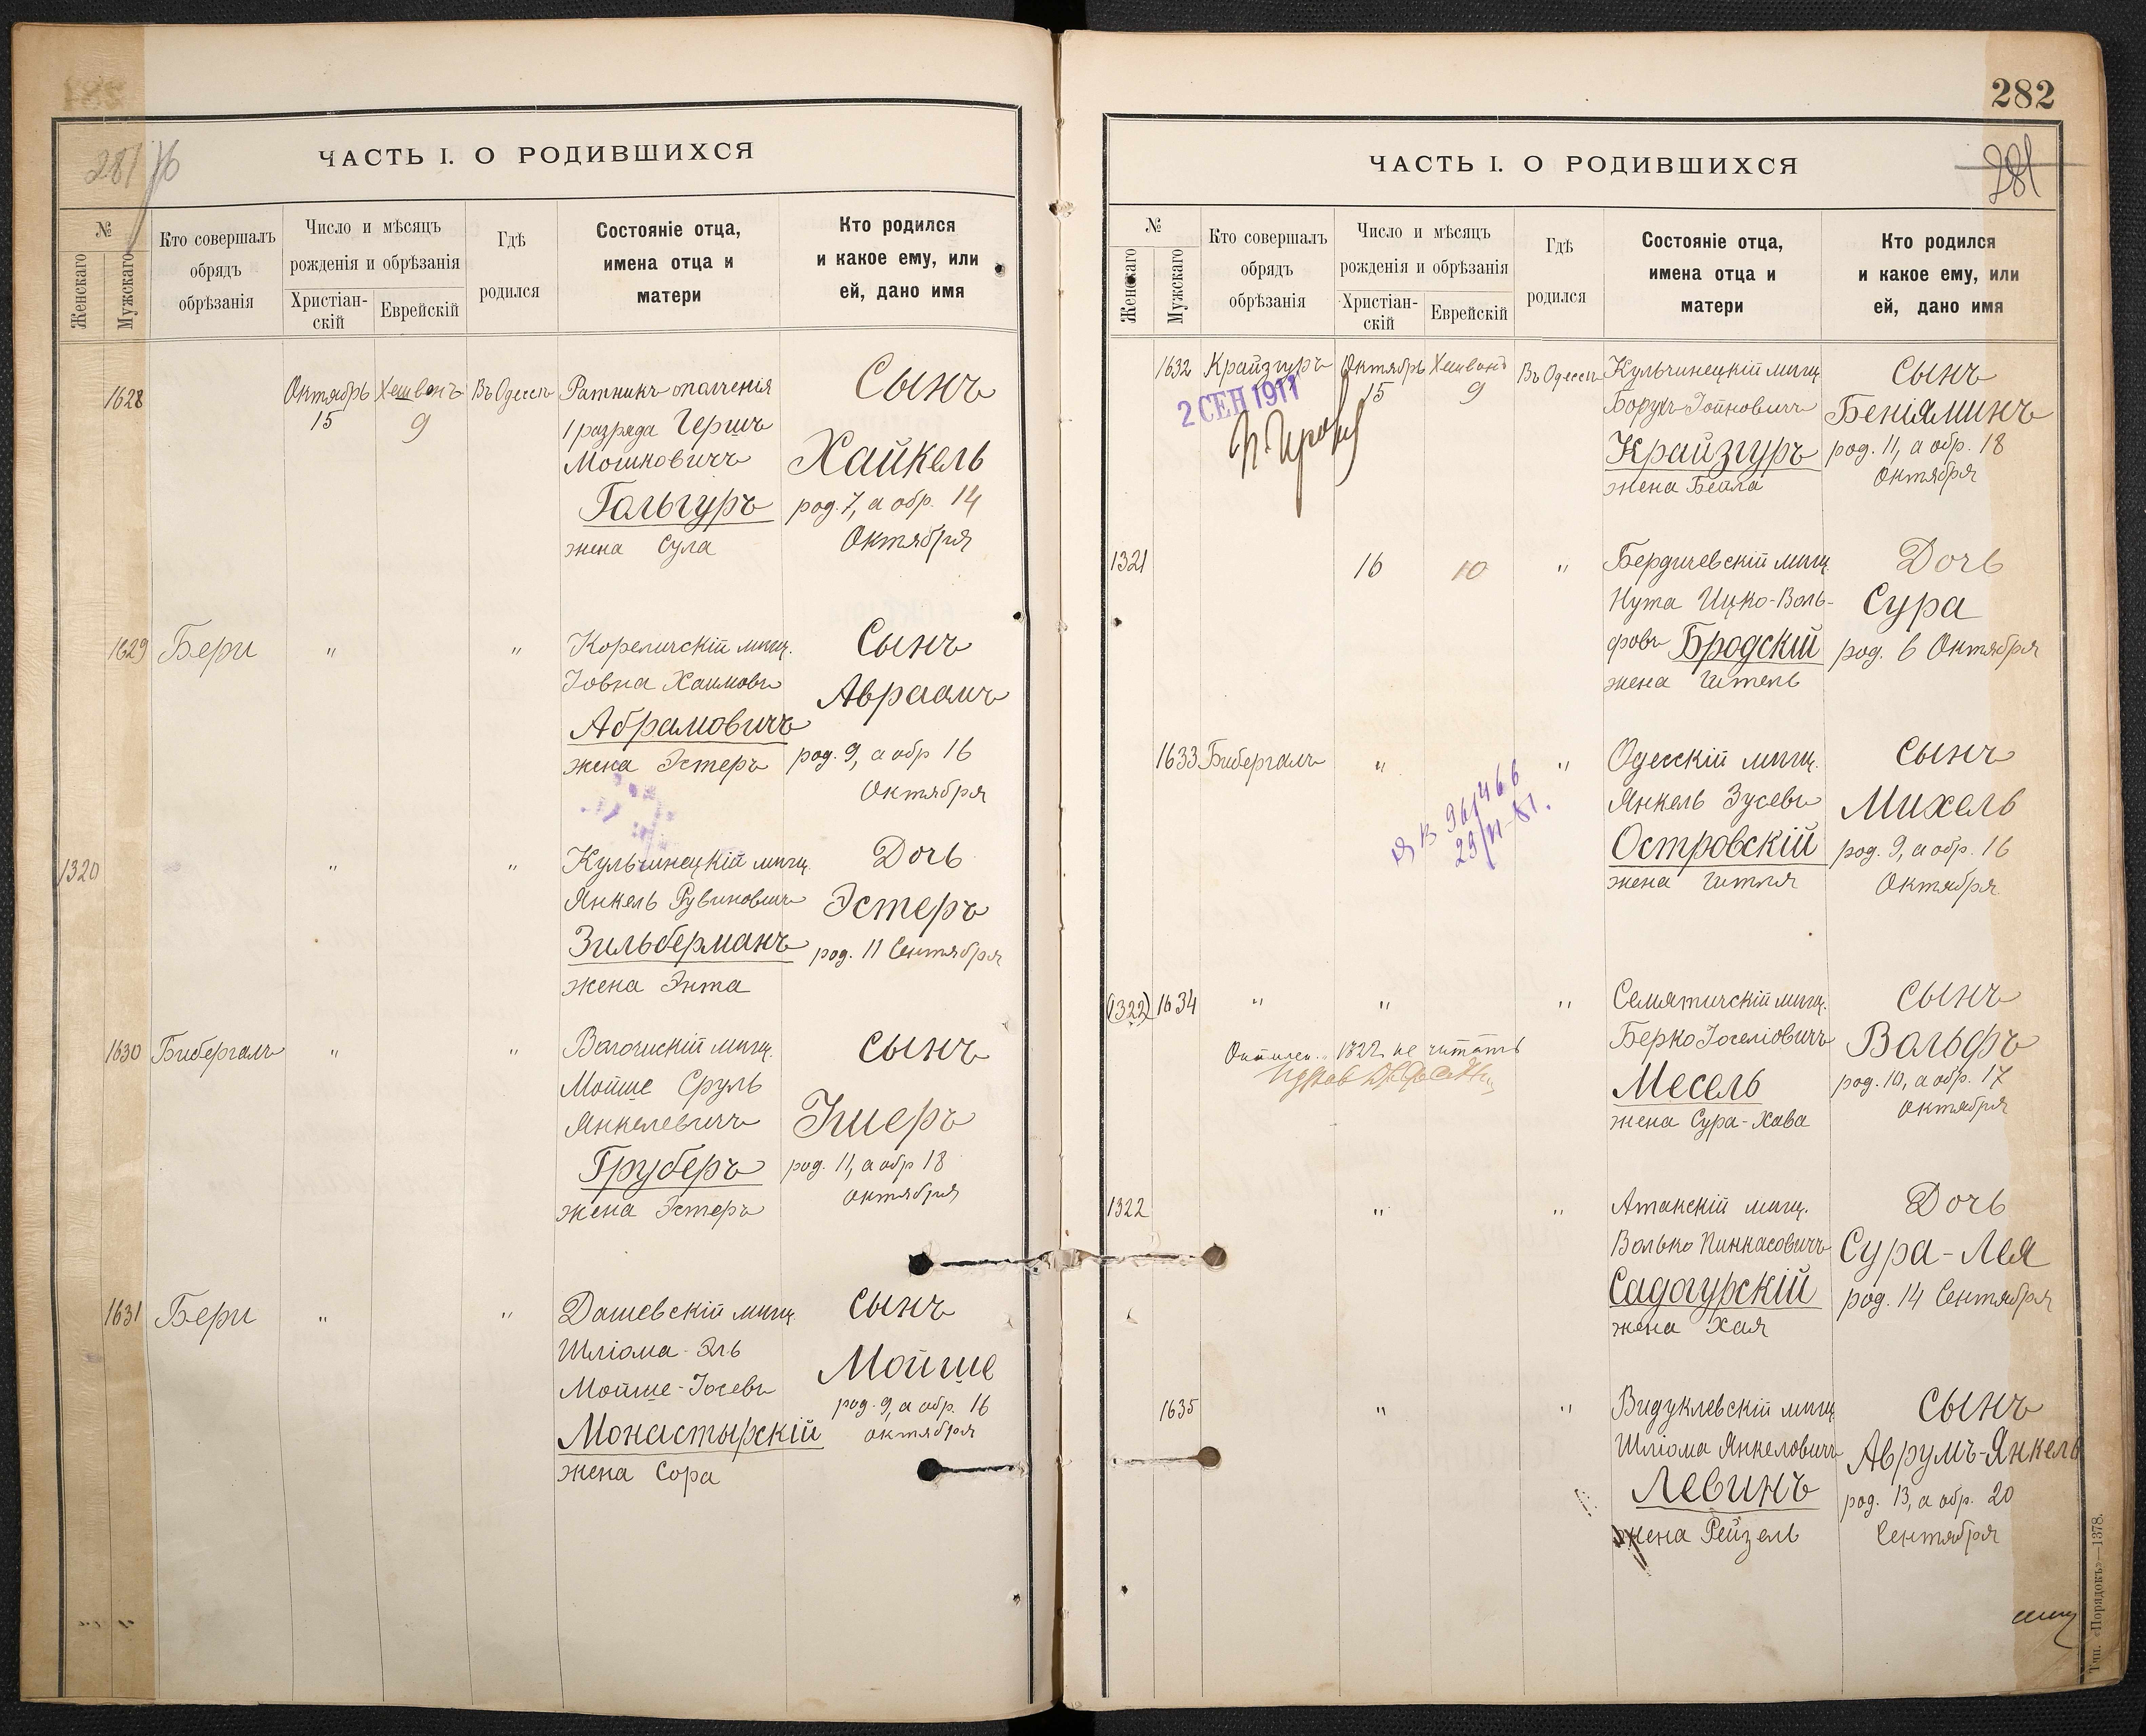 281
ЧАСТЬ I. О РОДИВШИХСЯ
№
Женскаго
Мужскаго
Кто совершалъ
обрядъ
обрѣзанія
Число и мѣсяцъ
рожденія и обрѣзанія
Христіан-
скій
Еврейскій
Гдѣ
родился
Состояніе отца,
имена отца и
матери
Кто родился
и какое ему, или
ей, дано имя
1628
Октябрь
15
Хешвонъ
9
Въ Одессѣ
Ратникъ ополченія
1 разряда Гершъ
Мошковичъ
Гольгуръ
жена Сула
Сынъ
Хайкель
род. 7, а обр. 14
Октября
1629
Бери
"
"
Кореличскій мѣщ.
Іовна Хаимовъ
Абрамовичъ
жена Эстеръ
Сынъ
Авраамъ
род. 9, а обр 16
Октября
1320
"
"
Кульчинецкій мѣщ.
Янкель Рувиновичъ
Зильберманъ
жена Энта
Дочь
Эстеръ
род. 11 Сентября
1630
Бибергалъ
"
"
мѣщ.
Мойше Сруль
Янкелевичъ
Груберъ
жена Эстеръ
Сынъ
род. 11, а обр 18
октября
1631
Бери
"
"
Дашевскій мѣщ.
Шліома-Эль
Мойше-Іосевъ
Монастырскій
жена Сора
Сынъ
Мойше
род. 9, а обр. 16
октября
282
281
ЧАСТЬ I. О РОДИВШИХСЯ
№
Женскаго
Мужскаго
Кто совершалъ
обрядъ
обрѣзанія
Число и мѣсяцъ
рожденія и обрѣзанія
Христіан-
скій
Еврейскій
Гдѣ
родился
Состояніе отца,
имена отца и
матери
Кто родился
и какое ему, или
ей, дано имя
1632
Крайзгуръ
2 СЕН 1911
Октябрь
15
Хешвонъ
9
Въ Одессѣ
Кульчинецкій мѣщ.
Борухъ Іойновичъ
Крайзгуръ
жена Бейла
Сынъ
Беніаминъ
род. 11, а обр. 18
Октября
1321
16
10
"
Бердичевскій мѣщ.
Нута Ицко-Воль-
фовъ Бродскій
жена Гитель
Дочь
Сура
род. 6 Октября
1633
Бибергалъ
"
"
Одесскій мѣщ.
Янкель Зусевъ
Островскій
жена Гитля
Сынъ
Михель
род. 9, а обр. 16
Октября
(1322)
1634
"
"
"
1322 не читать
Семятичскій мѣщ.
Берко Іоселіовичъ
Месель
жена Сура-Хава
Сынъ
Вольфъ
род. 10, а обр. 17
Октября
1322
"
"
Атакскій мѣщ.
Волько Пинкасовичъ
Садагурскій
жена Хая
Дочь
Сура-Лея
род. 14 Сентября
1635
"
"
Видуклевскій мѣщ.
Шліома Янкеловичъ
Левинъ
жена Рейзель
Сынъ
Аврумъ-Янкель
род. 13, а обр. 20
Сентября
Тип. «Порядокъ»—1378.